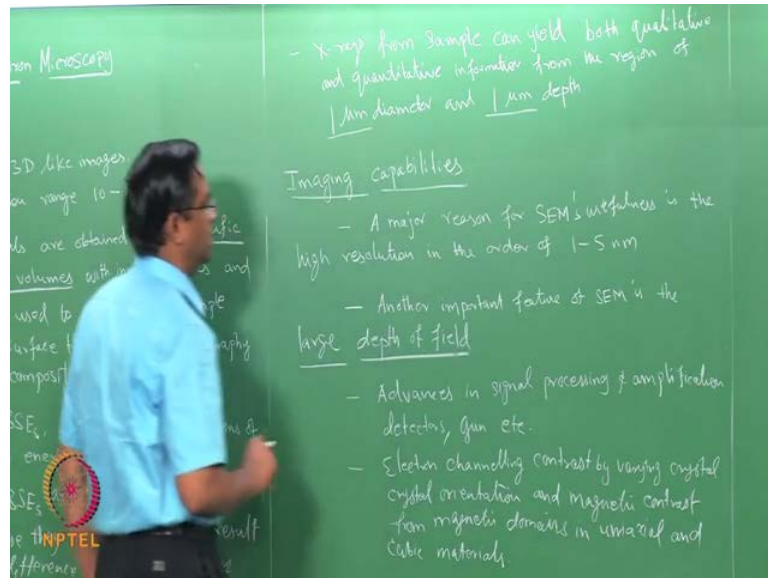 ron Microscopy
3D like images.
on range 10-
ls are obtained
fic
volumes with
s and
used to
ple
urface t
graphy
composit
SSEs,
ns of
ene
SSEs
e the
result
difference
NPTEL
- X-rays from Sample can yield both qualitative
and quantitative information from the region of
1 μm diameter and 1 μm depth
Imaging capabilities
- A major reason for SEM's usefulness is the
high resolution in the order of 1-5 nm
- Another important feature of SEM is the
large depth of field
- Advances in signal processing & amplification
detectors, Gun etc.
- Electron channelling contrast by varying crystal
crystal orientation and magnetic contrast
from magnetic domains in uniaxial and
Cubic materials.